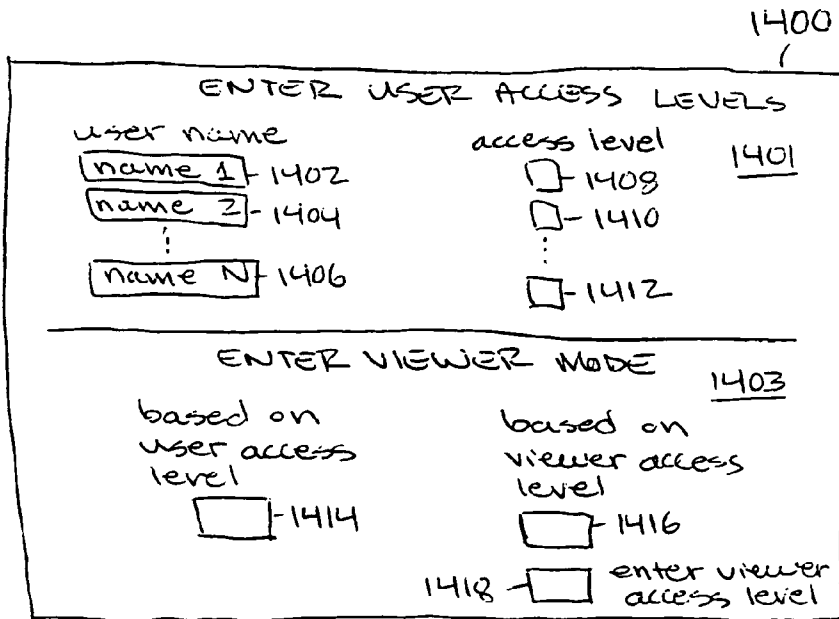 1400
ENTER USER ACCESS LEVELS
user name
access level
1401
name 1
1402
1408
name 2
1404
1410
name N
1406
1412
ENTER VIEWER MODE
1403
based on
user access
level
1414
based on
viewer access
level
1416
1418
enter viewer
access level